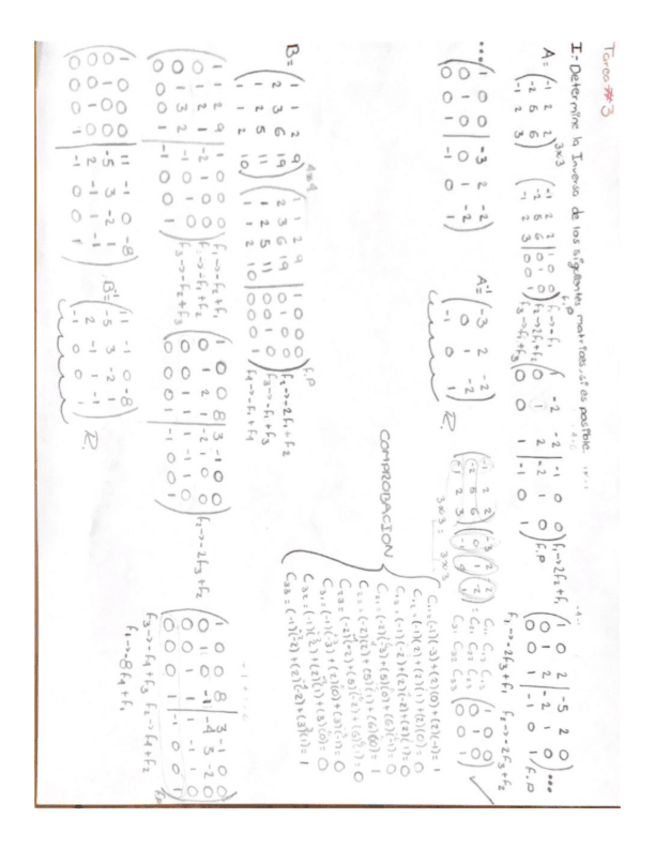 Tarea #3
I.- Determine la Inversa de las siguientes matrices, si es posible.
A = (-1 2 2
-2 5 6
-1 2 3) 3x3
(-1 2 2 | 1 0 0
-2 5 6 | 0 1 0
-1 2 3 | 0 0 1) F.P
f1 -> -f1
f2 -> 2f1+f2
f3 -> f1+f3
(1 -2 -2 | -1 0 0
0 1 2 | -2 1 0
0 0 1 | -1 0 1) F.P
f1 -> 2f2+f1
(1 0 2 | -5 2 0
0 1 2 | -2 1 0
0 0 1 | -1 0 1) F.P ...
f1 -> -2f3+f1 f2 -> -2f3+f2
... (1 0 0 | -3 2 -2
0 1 0 | 0 1 -2
0 0 1 | -1 0 1)
A⁻¹ = (-3 2 -2
0 1 -2
-1 0 1) R.
(-1 2 2
-2 5 6
-1 2 3)
3x3 = 3x3
C11 C12 C13
C21 C22 C23
C31 C32 C33
(1 0 0
0 1 0
0 0 1)
COMPROBACION
C11 = (-1)(-3)+(2)(0)+(2)(-1) = 1
C12 = (-1)(2)+(2)(1)+(2)(0) = 0
C13 = (-1)(-2)+(2)(-2)+(2)(1) = 0
C21 = (-2)(-3)+(5)(0)+(6)(-1) = 0
C22 = (-2)(2)+(5)(1)+(6)(0) = 1
C23 = (-2)(-2)+(5)(-2)+(6)(1) = 0
C31 = (-1)(-3)+(2)(0)+(3)(-1) = 0
C32 = (-1)(2)+(2)(1)+(3)(0) = 0
C33 = (-1)(-2)+(2)(-2)+(3)(1) = 1
B = (1 1 2 9
2 3 6 19
1 2 5 11
1 1 2 10) 4x4
(1 1 2 9 | 1 0 0 0
2 3 6 19 | 0 1 0 0
1 2 5 11 | 0 0 1 0
1 1 2 10 | 0 0 0 1) F.P
f2 -> -2f1+f2
f3 -> -f1+f3
f4 -> -f1+f4
(1 1 2 9 | 1 0 0 0
0 1 2 1 | -2 1 0 0
0 1 3 2 | -1 0 1 0
0 0 0 1 | -1 0 0 1)
f1 -> -f2+f1
f3 -> -f2+f3
(1 0 0 8 | 3 -1 0 0
0 1 2 1 | -2 1 0 0
0 0 1 1 | 1 -1 1 0
0 0 0 1 | -1 0 0 1)
f2 -> -2f3+f2
(1 0 0 8 | 3 -1 0 0
0 1 0 -1 | -4 3 -2 0
0 0 1 1 | 1 -1 1 0
0 0 0 1 | -1 0 0 1)
f3 -> -f4+f3 f2 -> f4+f2
f1 -> -8f4+f1
(1 0 0 0 | 11 -1 0 -8
0 1 0 0 | -5 3 -2 1
0 0 1 0 | 2 -1 1 -1
0 0 0 1 | -1 0 0 1)
B⁻¹ = (11 -1 0 -8
-5 3 -2 1
2 -1 1 -1
-1 0 0 1) R.